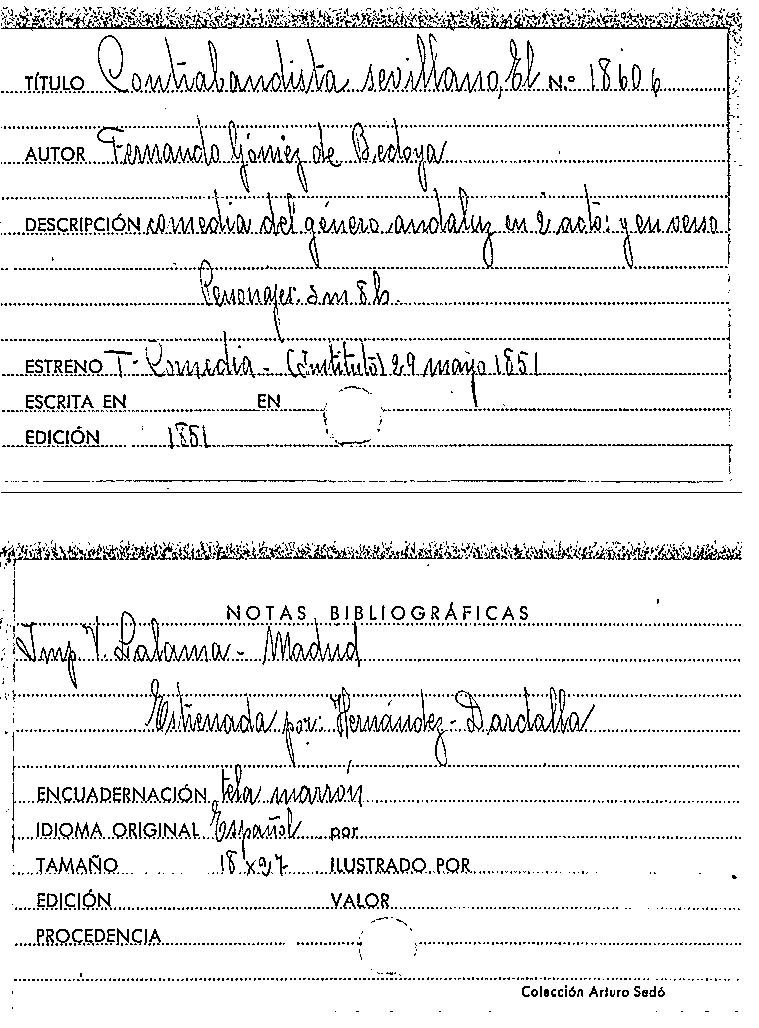 TÍTULO Contrabandista sevillano, El N.º 18606
AUTOR Fernando Gómez de Bedoya
DESCRIPCIÓN comedia del género andaluz en 2 actos y en verso
Personajes. 2 m 8 h.
ESTRENO T- Comedia - (Instituto) 29 mayo 1851
ESCRITA EN EN
EDICIÓN 1851
NOTAS BIBLIOGRÁFICAS
Imp V. Lalama - Madrid
Estrenada por: Hernández - Dardalla
ENCUADERNACIÓN tela marrón
IDIOMA ORIGINAL Español por
TAMAÑO 18 x 27 ILUSTRADO POR
EDICIÓN VALOR
PROCEDENCIA
Colección Arturo Sedó